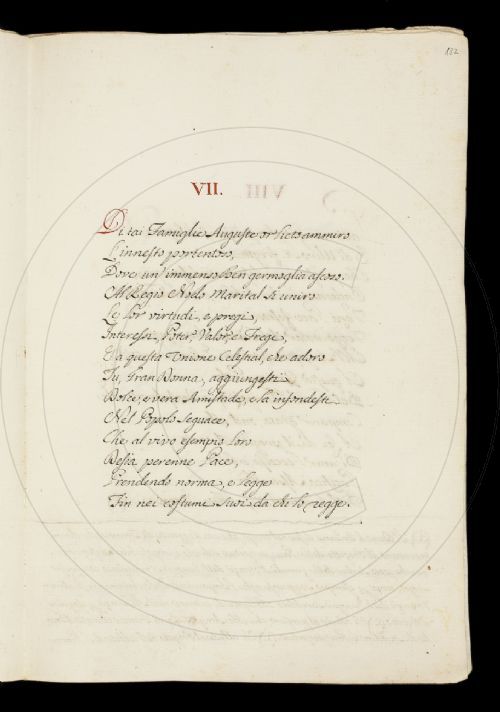 132
VII.
Di tai Famiglie Auguste or lieto ammiro
L'innesto portentoso,
Dove un' immenso ben germoglia ascoso.
Al Regio Nodo Marital s'uniro
Le lor virtudi, e pregi,
Interessi, Poter, Valor, e Fregi,
E a questa Unione Celestial, che adoro
Tu, Gran Donna, aggiungesti
Dolce, e vera Amistade, e la infondesti
Nel Popolo seguace,
Che al vivo esempio loro
Resta perenne Pace,
Prendendo norma, e legge
Fin nei costumi suoi da chi lo regge.